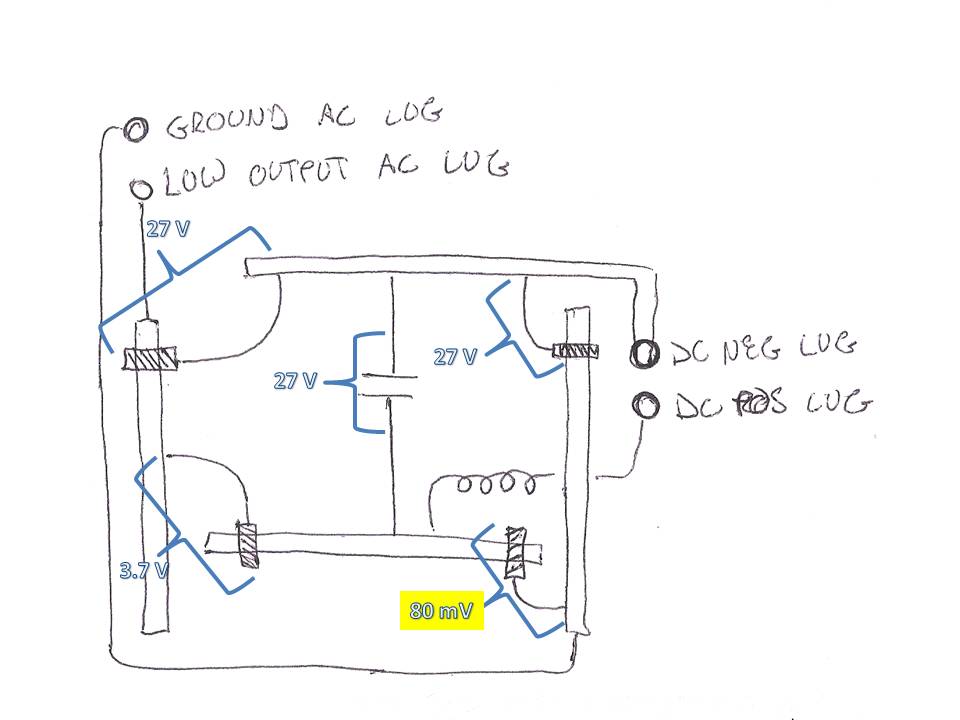 GROUND AC LUG
LOW OUTPUT AC LUG
27 V
27 V
27 V
DC NEG LUG
DC POS LUG
3.7 V
80 mV